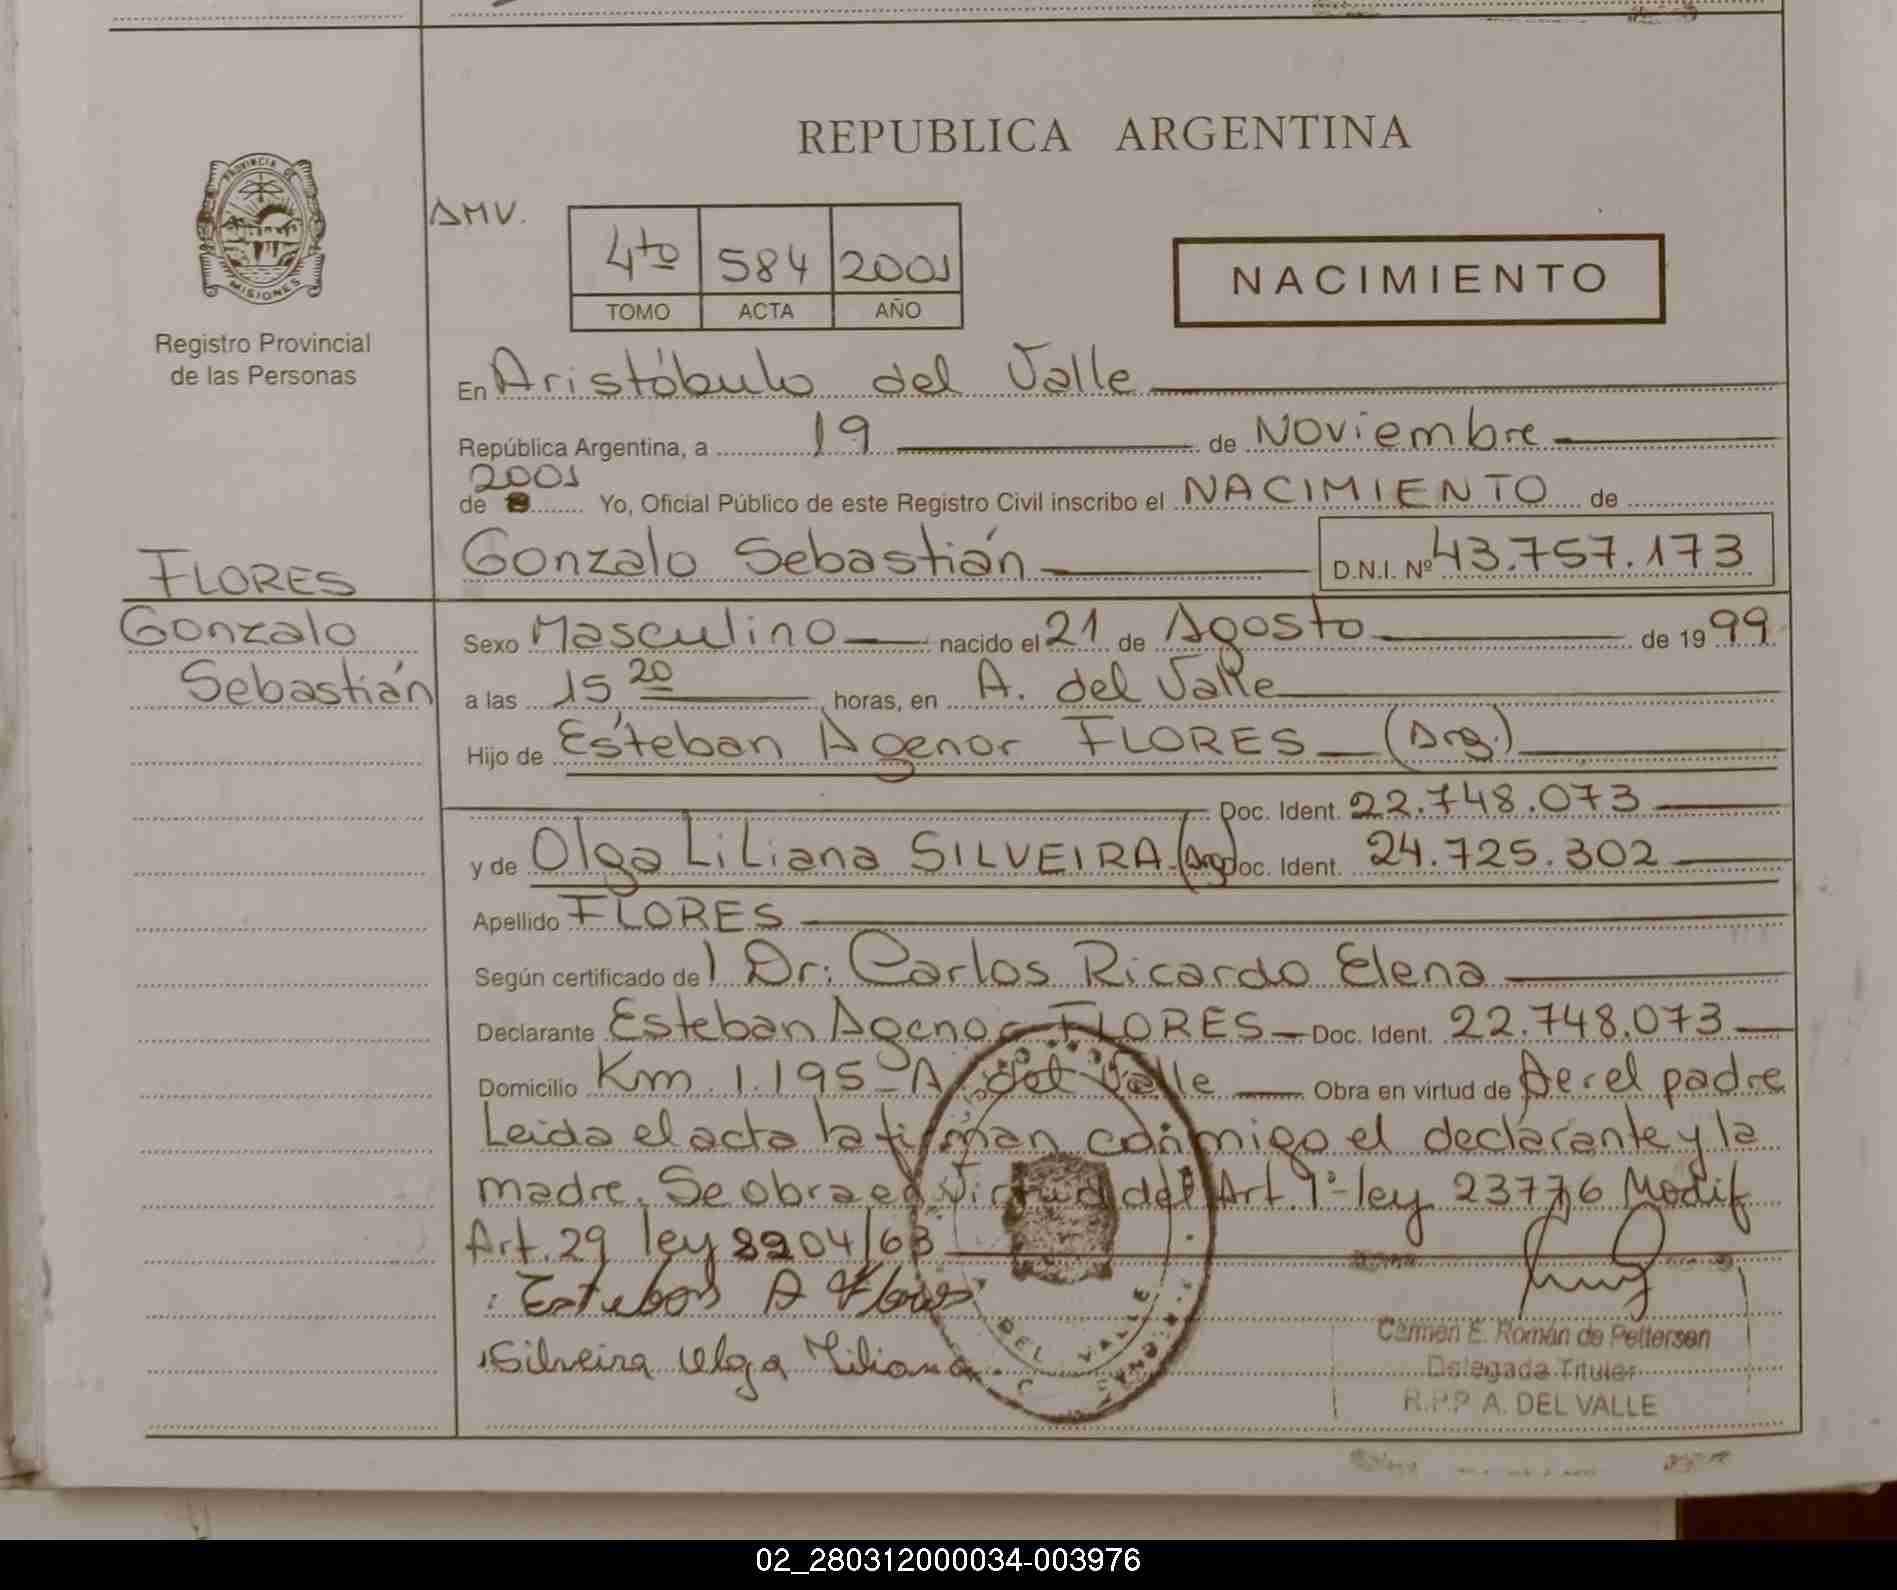 REPUBLICA ARGENTINA
PROVINCIA DE
MISIONES
Registro Provincial
de las Personas
AMV.
4to 584 2001
TOMO ACTA AÑO
NACIMIENTO
En Aristóbulo del Valle
República Argentina, a 19 de Noviembre
2001
de Yo, Oficial Público de este Registro Civil inscribo el NACIMIENTO de
Gonzalo Sebastián D.N.I. Nº 43.757.173
FLORES
Gonzalo
Sebastián
Sexo Masculino nacido el 21 de Agosto de 1999
a las 15,20 horas, en A. del Valle
Hijo de Esteban Agenor FLORES (Arg.)
Doc. Ident. 22.748.073
y de Olga Liliana SILVEIRA. (Arg) Doc. Ident. 24.725.302
Apellido FLORES
Según certificado del Dr: Carlos Ricardo Elena
Declarante Esteban Agenor FLORES Doc. Ident. 22.748.073
Domicilio Km. 1.195 A. del Valle Obra en virtud de Ser el padre
Leida el acta la firman conmigo el declarante y la
madre. Se obra en Virtud del Art. 1º ley 23776 Modif
Art. 29 ley 8204/63
Esteban A Flores
Silveira Olga Liliana
DEL VALLE
Carmen E. Román de Pettersen
Delegada Titular
R.P.P. A. DEL VALLE
02_280312000034-003976